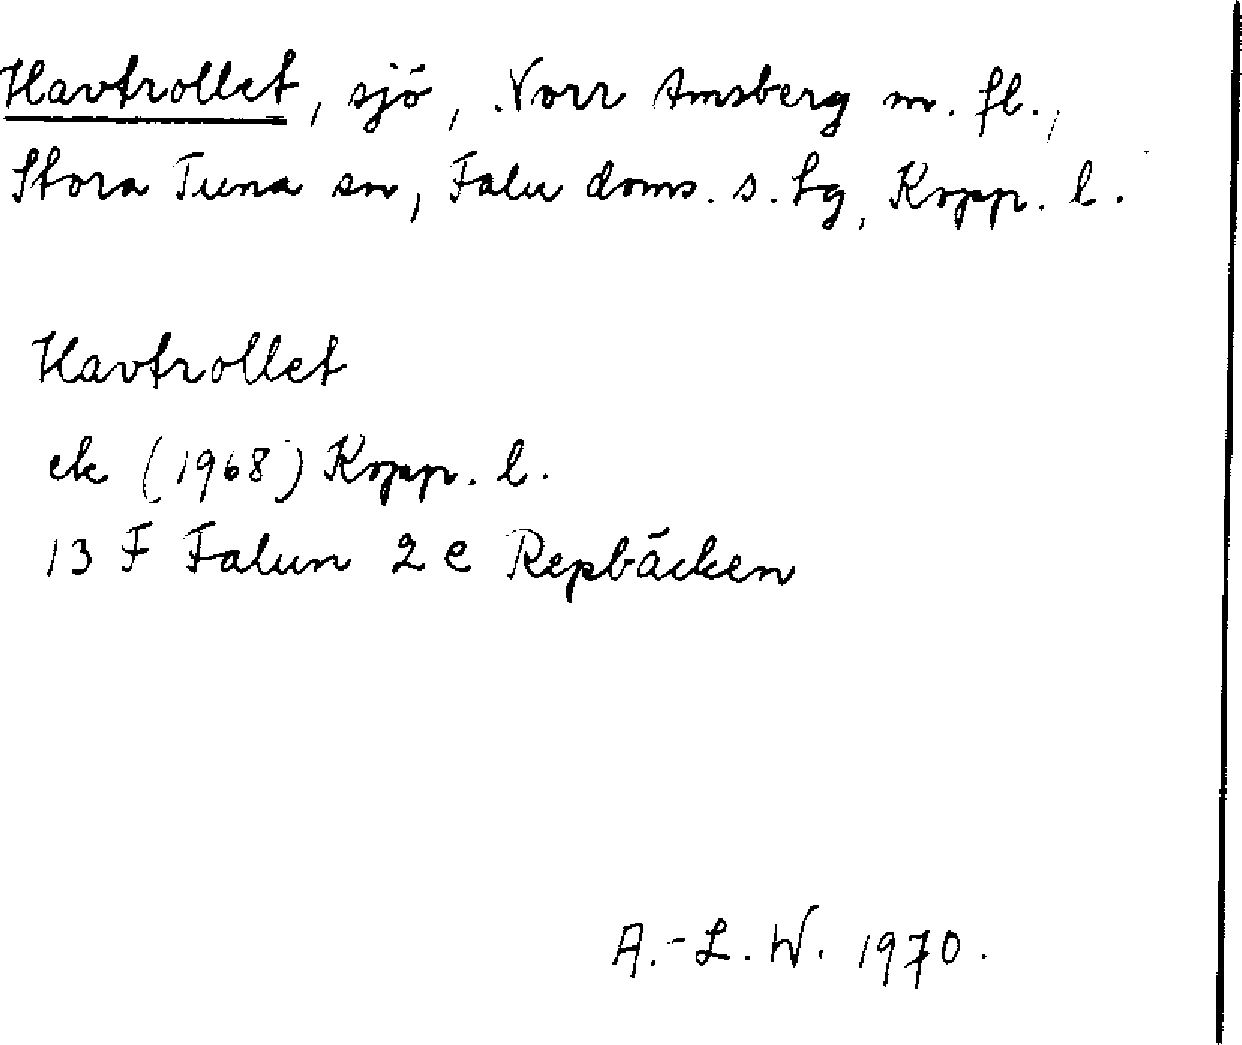 Havtrollet, sjö, Norr Amsberg m. fl.,
Stora Tuna sn, Falu doms. s. tg, Kopp. l.
Havtrollet
ek (1968) Kopp. l.
13 F Falun 2 e Repbäcken
A.-L. W. 1970.